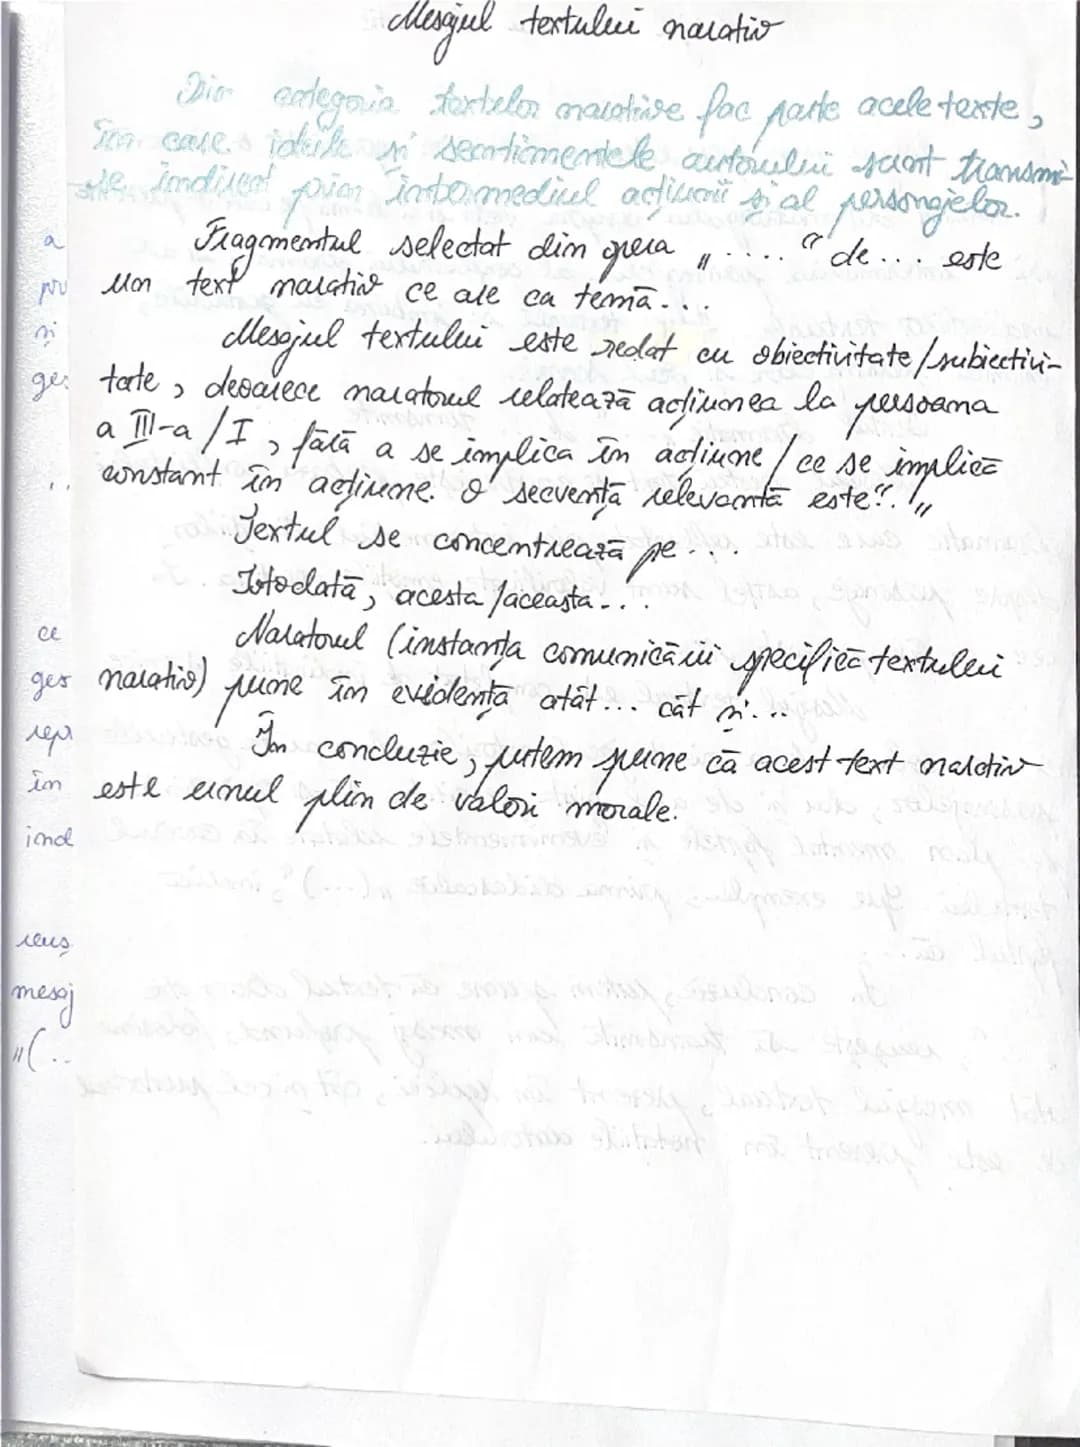 Mesajul textului narativ
Din categoria textelor narative fac parte acele texte,
în care ideile și sentimentele autorului sunt transmi-
se indirect prin intermediul acțiunii și al personajelor.
Fragmentul selectat din opera „.... ” de... este
un text narativ ce are ca temă...
Mesajul textului este redat cu obiectivitate/subiectivi-
tate, deoarece naratorul relatează acțiunea la persoana
a III-a/I, fără a se implica în acțiune/ce se implică
constant în acțiune. O secvență relevantă este: „
Textul se concentrează pe...
Totodată, acesta/aceasta...
Naratorul (instanța comunicării specifică textului
narativ) pune în evidență atât... cât și...
În concluzie, putem spune că acest text narativ
este unul plin de valori morale.
a
și
ce
ges
repr
în
ind
reuș
mesaj
„(..